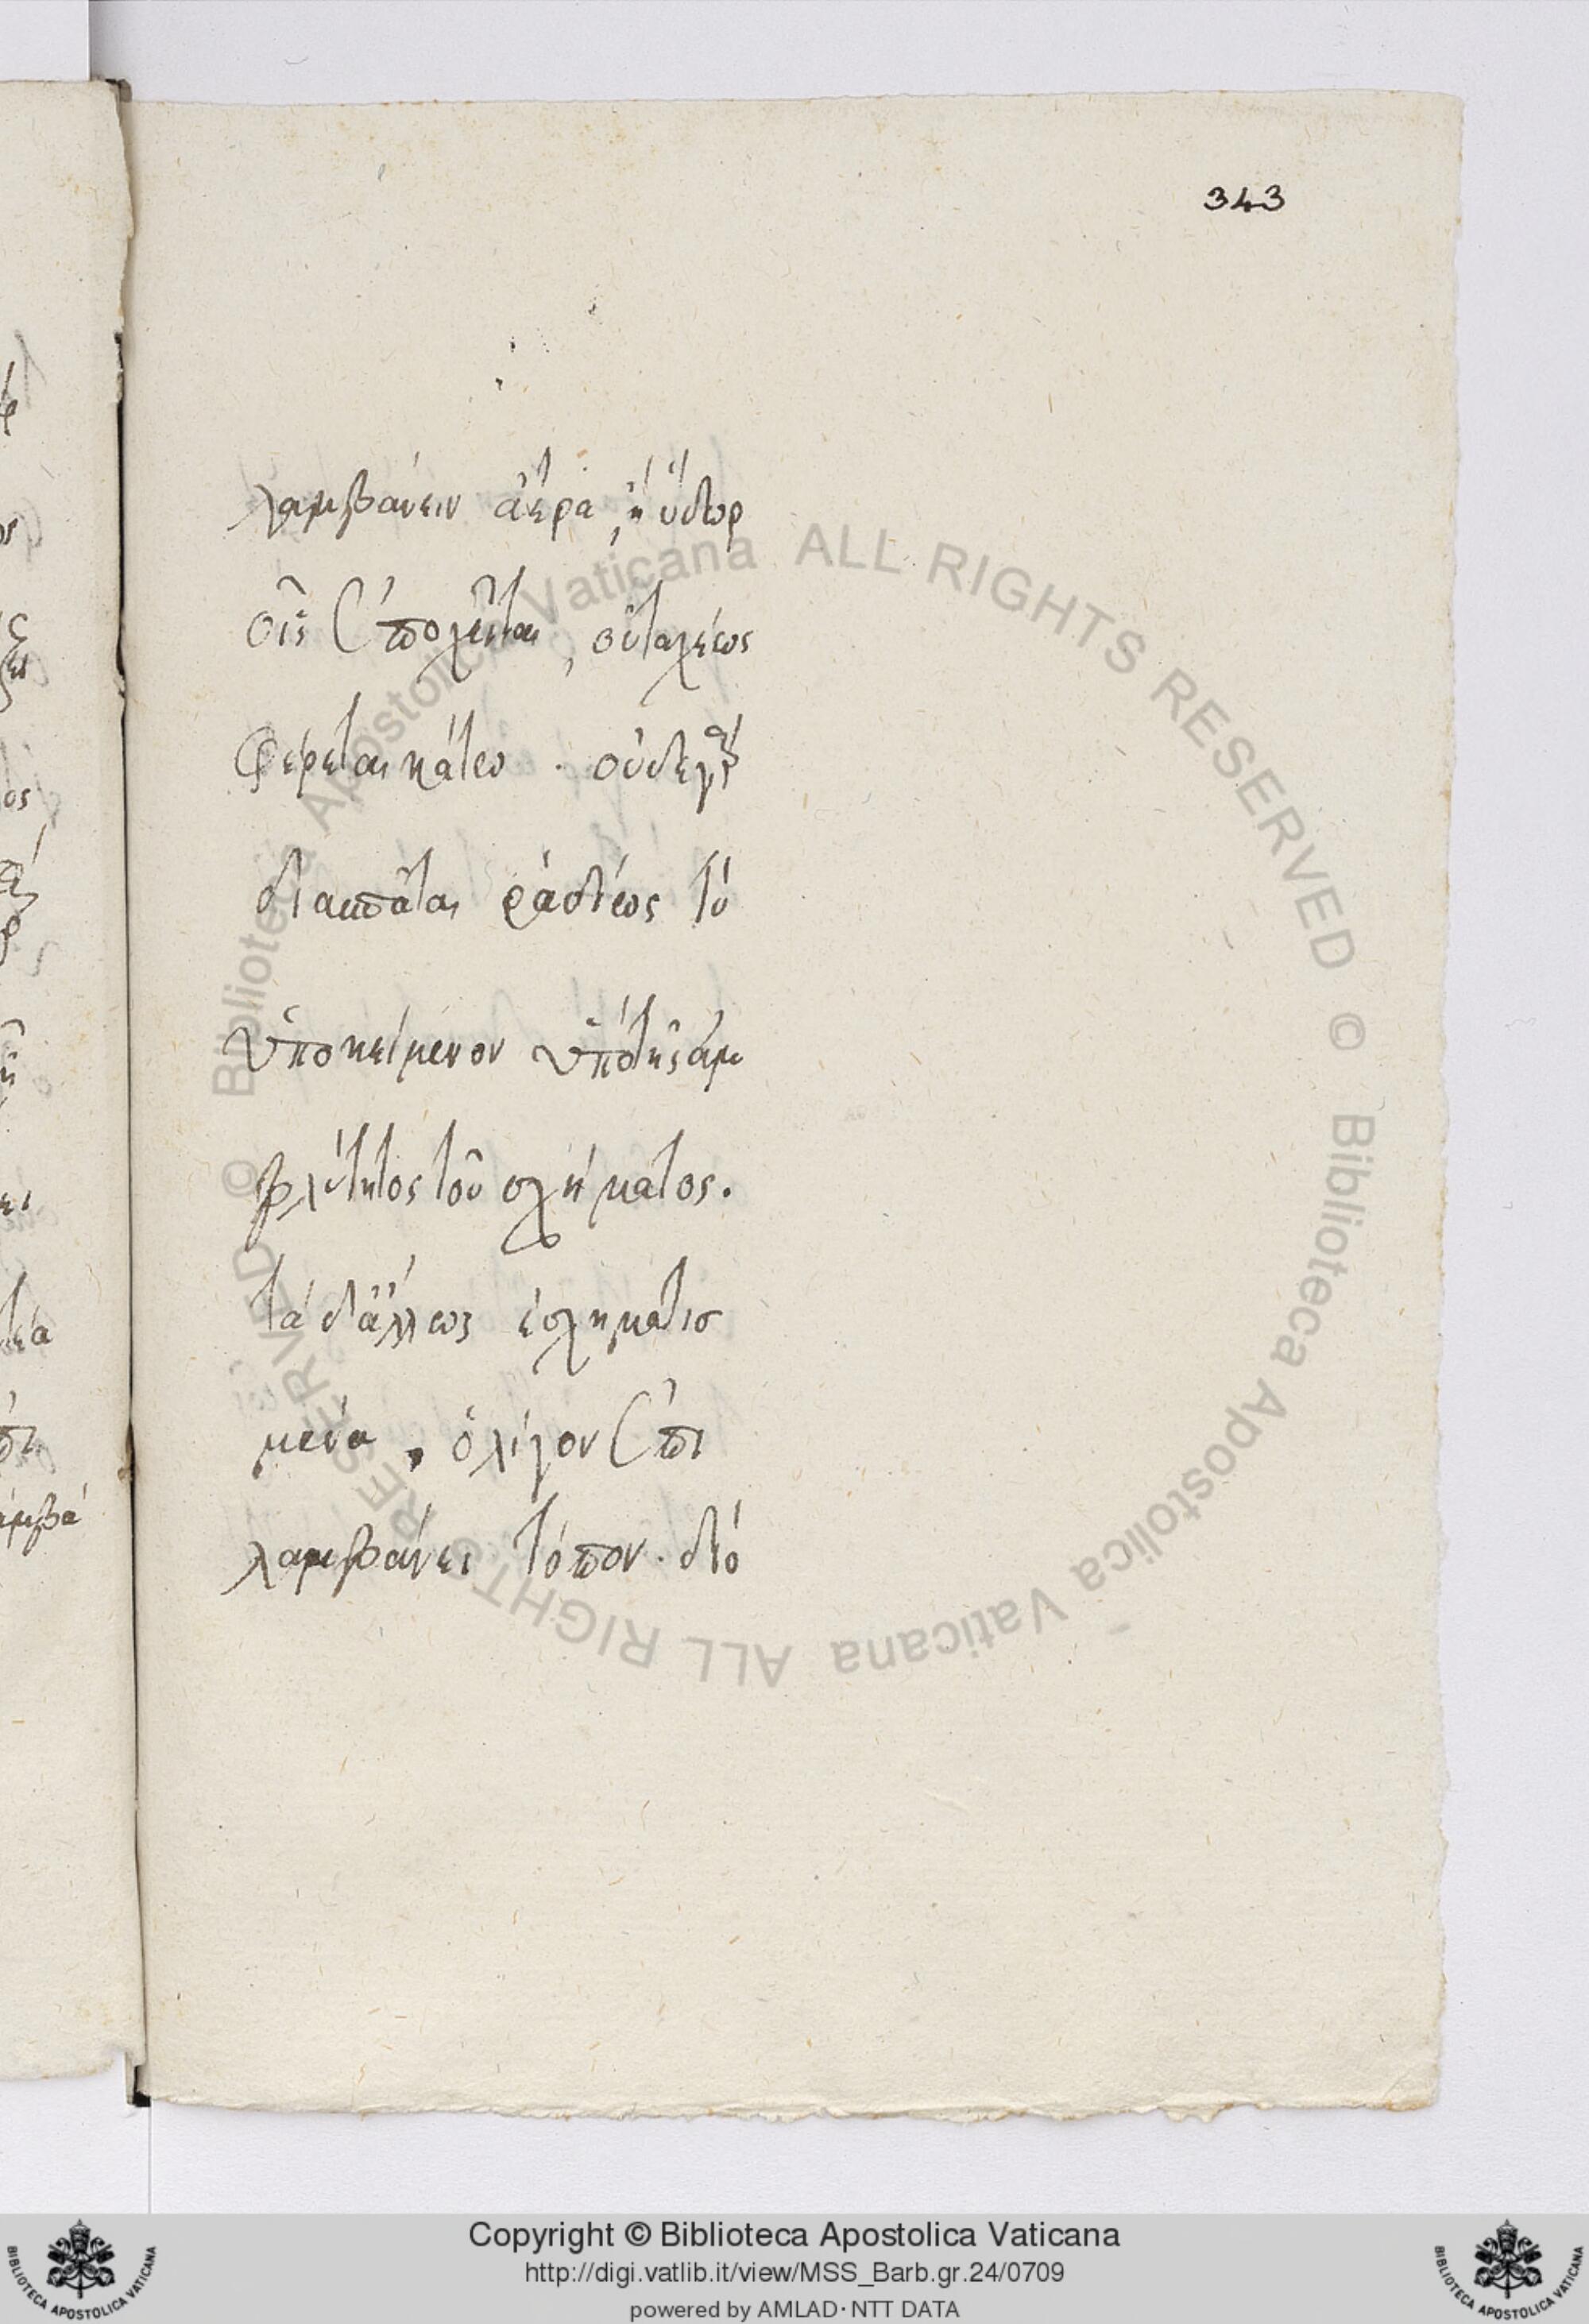 343
λαμβάνειν ἀέρα, ἢ ὕδωρ
οἷς ἐπολεῖται, οὐ ταχέως
φέρεται κάτω. οὐδε γὰρ
διασπᾶται ῥαδίως τὸ
ὑποκείμενον ὑπὸ τῆς ἀμ
βλύτητος τοῦ σχήματος.
τὰ δ' ἄλλως ἐσχηματισ
μένα, ὀλίγον ἐπι
λαμβάνει τόπον. διὸ
© Biblioteca Apostolica Vaticana ALL RIGHTS RESERVED © Biblioteca Apostolica Vaticana ALL RIGHTS RESERVED
Copyright © Biblioteca Apostolica Vaticana
http://digi.vatlib.it/view/MSS_Barb.gr.24/0709
powered by AMLAD·NTT DATA
BIBLIOTECA APOSTOLICA VATICANA
BIBLIOTECA APOSTOLICA VATICANA